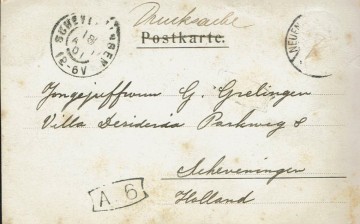 Drucksache
Postkarte.
SCHEVENINGEN
18
01
12-6V
Jongejuffrouw G. Grelinger
Villa Desideria Parkweg 8
Scheveningen
Holland
A 6